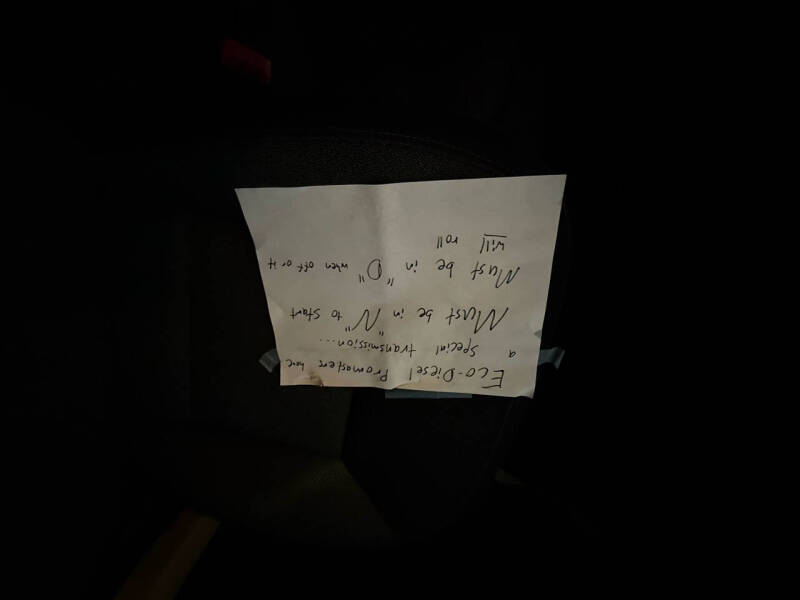 Eco-Diesel Promasters have
a special transmission...
Must be in "N" to start
Must be in "D" when off or it
will roll